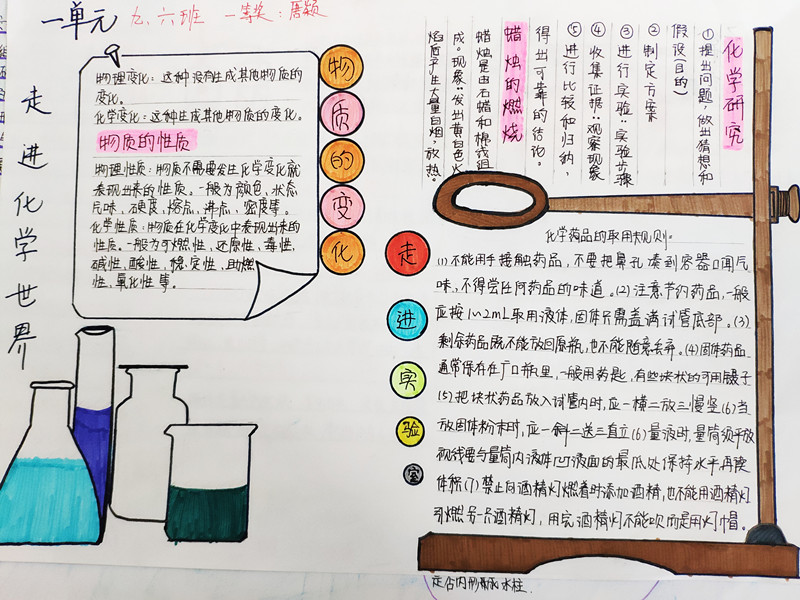 一单元
九.六班 一等奖:唐颖
走进化学世界
物理变化:这种没有生成其他物质的
变化。
化学变化:这种生成其他物质的变化。
物质的性质
物理性质:物质不需要发生化学变化就
表现出来的性质。一般为颜色,状态,
气味,硬度,熔点,沸点,密度等。
化学性质:物质在化学变化中表现出来的
性质。一般为可燃性,还原性,毒性,
碱性,酸性,稳定性,助燃
性,氧化性等。
物质的变化
化学研究
①提出问题,做出猜想和
假设(目的)
②制定方案
③进行实验:实验步骤
④收集证据:观察现象
⑤进行比较和归纳,
得出可靠的结论。
蜡烛的燃烧
蜡烛是由石蜡和棉线组
成。现象:发出黄白色火
焰,产生大量白烟,放热。
走进实验室
化学药品的取用规则:
(1)不能用手接触药品,不要把鼻孔凑到容器口闻气
味,不得尝任何药品的味道。(2)注意节约药品,一般
应按1~2mL取用液体,固体只需盖满试管底部。(3)
剩余药品既不能放回原瓶,也不能随意丢弃。(4)固体药品
通常保存在广口瓶里,一般用药匙,有些块状的可用镊子
(5)把块状药品放入试管内时,应一横二放三慢竖(6)当
放固体粉末时,应一斜二送三直立(6)量液时,量筒须平放
视线要与量筒内液体凹液面的最低处保持水平再读
体积(7)禁止向酒精灯燃着时添加酒精,也不能用酒精灯
引燃另一只酒精灯,用完酒精灯不能吹而是用灯帽。
水柱.